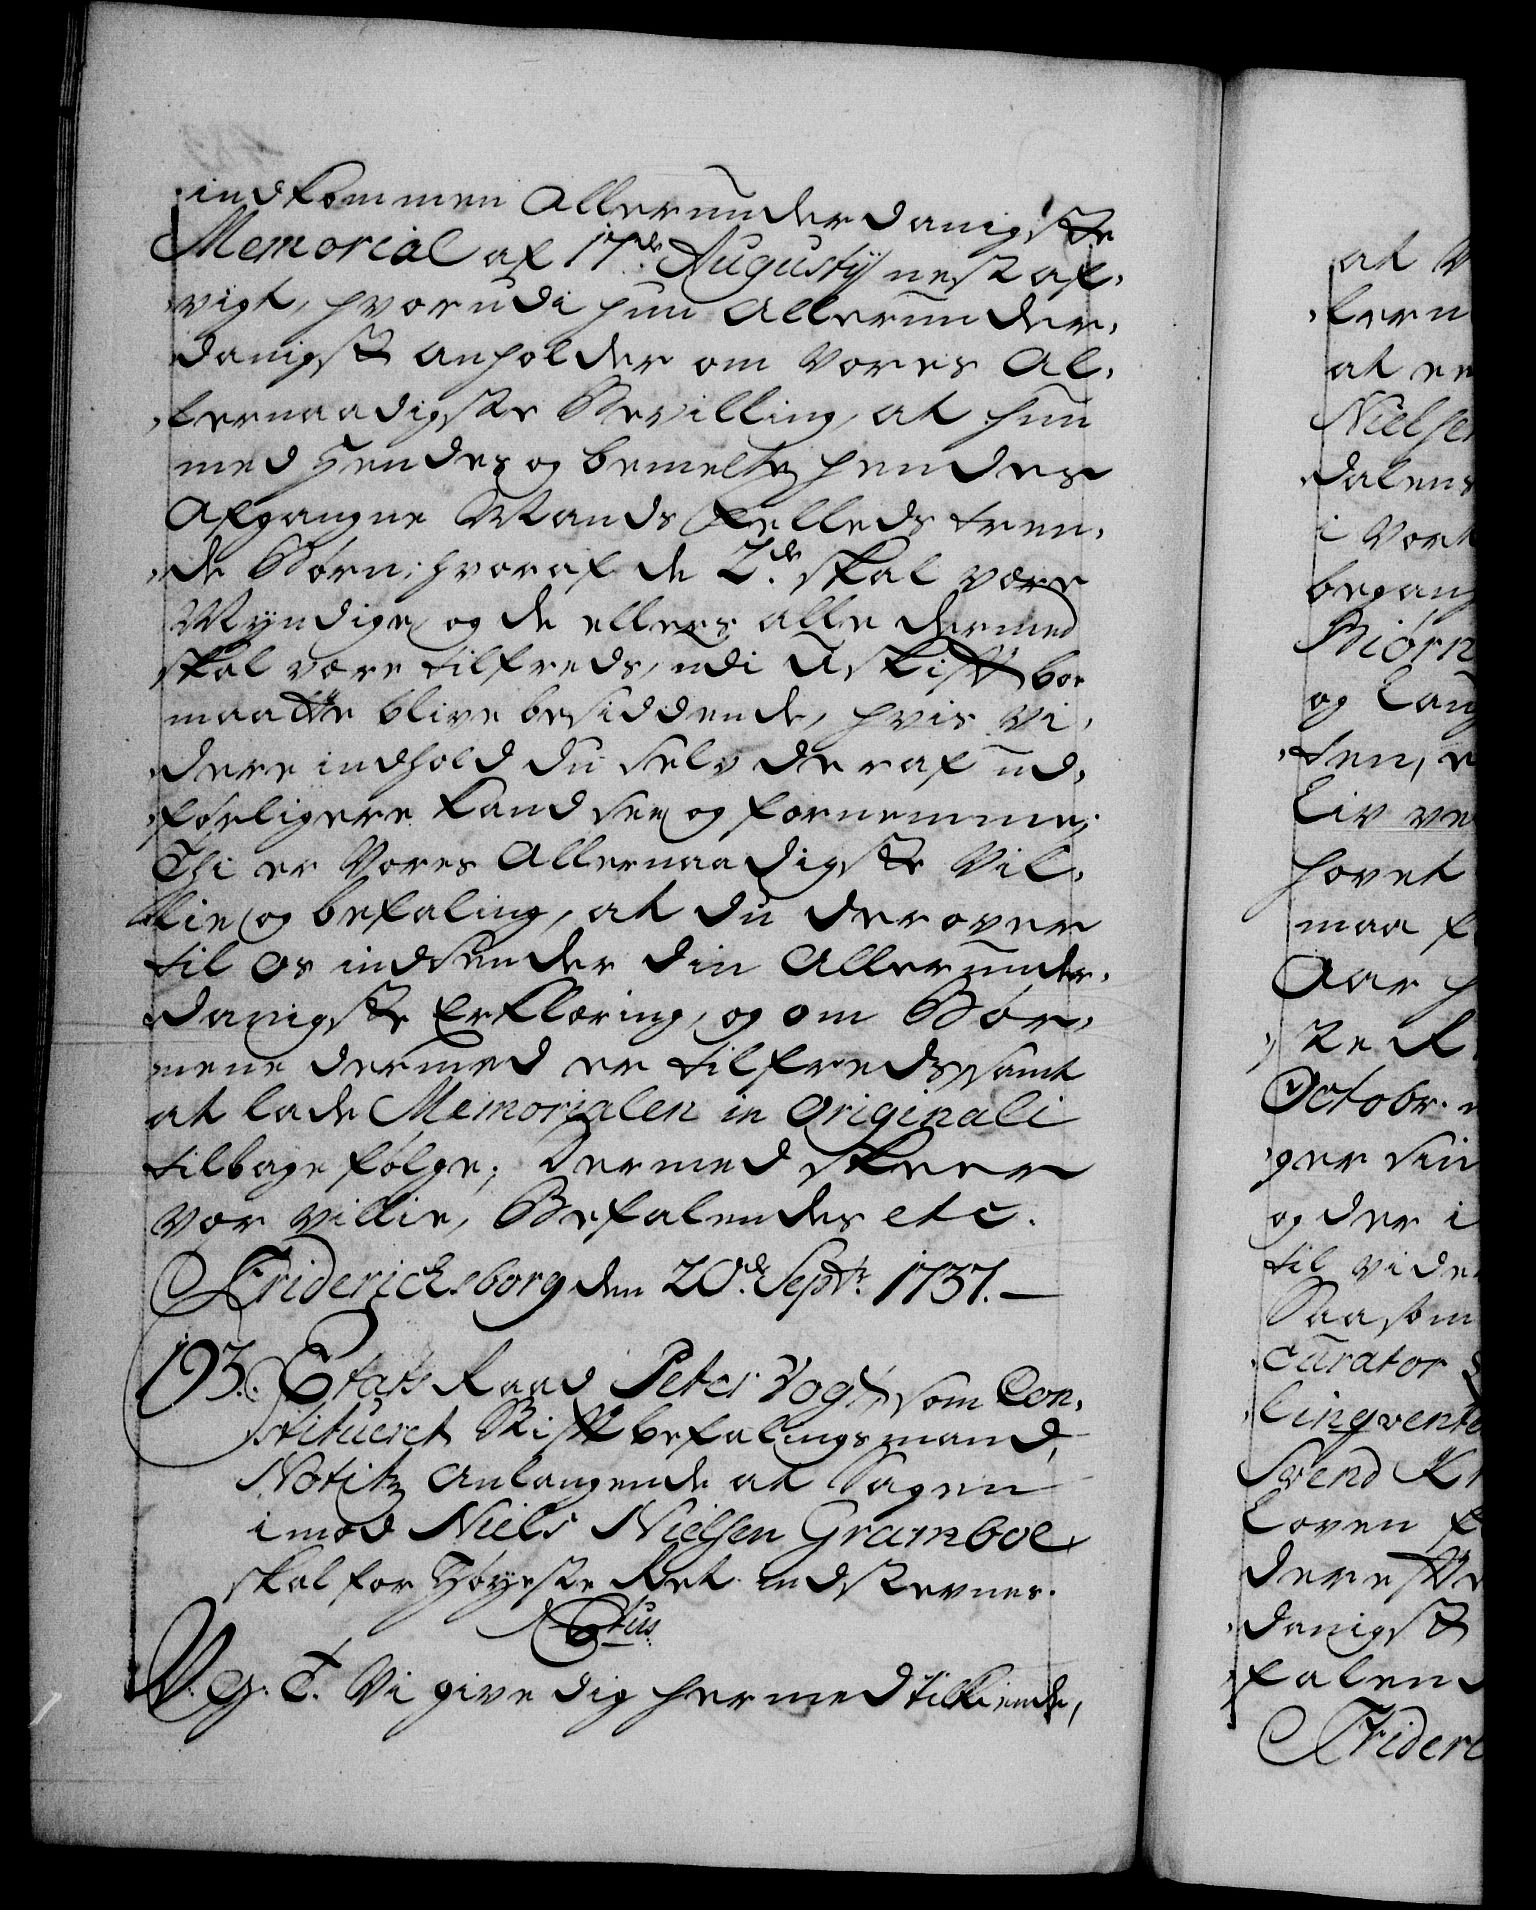 indkommen Allerunderdanigste
Memorial af 17de Augustÿ nest af,
vigt, hvorudi hun Allerunder,
danigst anholder om Vores Al,
lernaadigste Bevilling, at hun
med Hendes og bemelte hendes
Afgangne Mands Felleds tren,
de Børn, hvoraf de 2de skal være
Mÿndige, og de ellers alle dermed
skal være tilfreds, udi Uskift boe
maatte blive besiddende, hvis vi,
dere indhold du selv deraf ud,
førligere kand see og fornemme;
Thi er Vores Allernaadigste Vil,
lie og befaling, at du derover
til Os indsender din Allerunder,
danigste Erklæring, og om Bør,
nene dermed er tilfreds, samt
at lade Memorialen in Originali
tilbage følge; Dermed skeer
vor villie, Befalendes etc.
Friderichsborg den 20de Septr: 1737. —
193. Etats Raad Peter Vogt, som Con,
stitueret Stiftbefalingsmand,
Notitz anlangende at Sagen
imod Niels Nielsen Gramboe
skal for Høÿeste Ret indstevnes.
V. G. T. Vi give dig hermed tilkiende,
at V
lern
at en
Nielsen
dalens
i Vort
begang
Biørn
og Lang
ten, e
Liv ve
hovet
maa f
Aar h
te R
Octobr.
ger sin
og der i
til vide
Saasom
Curator
lingvente
Svend K
Loven f
derefte
danigst
falend
Frideri